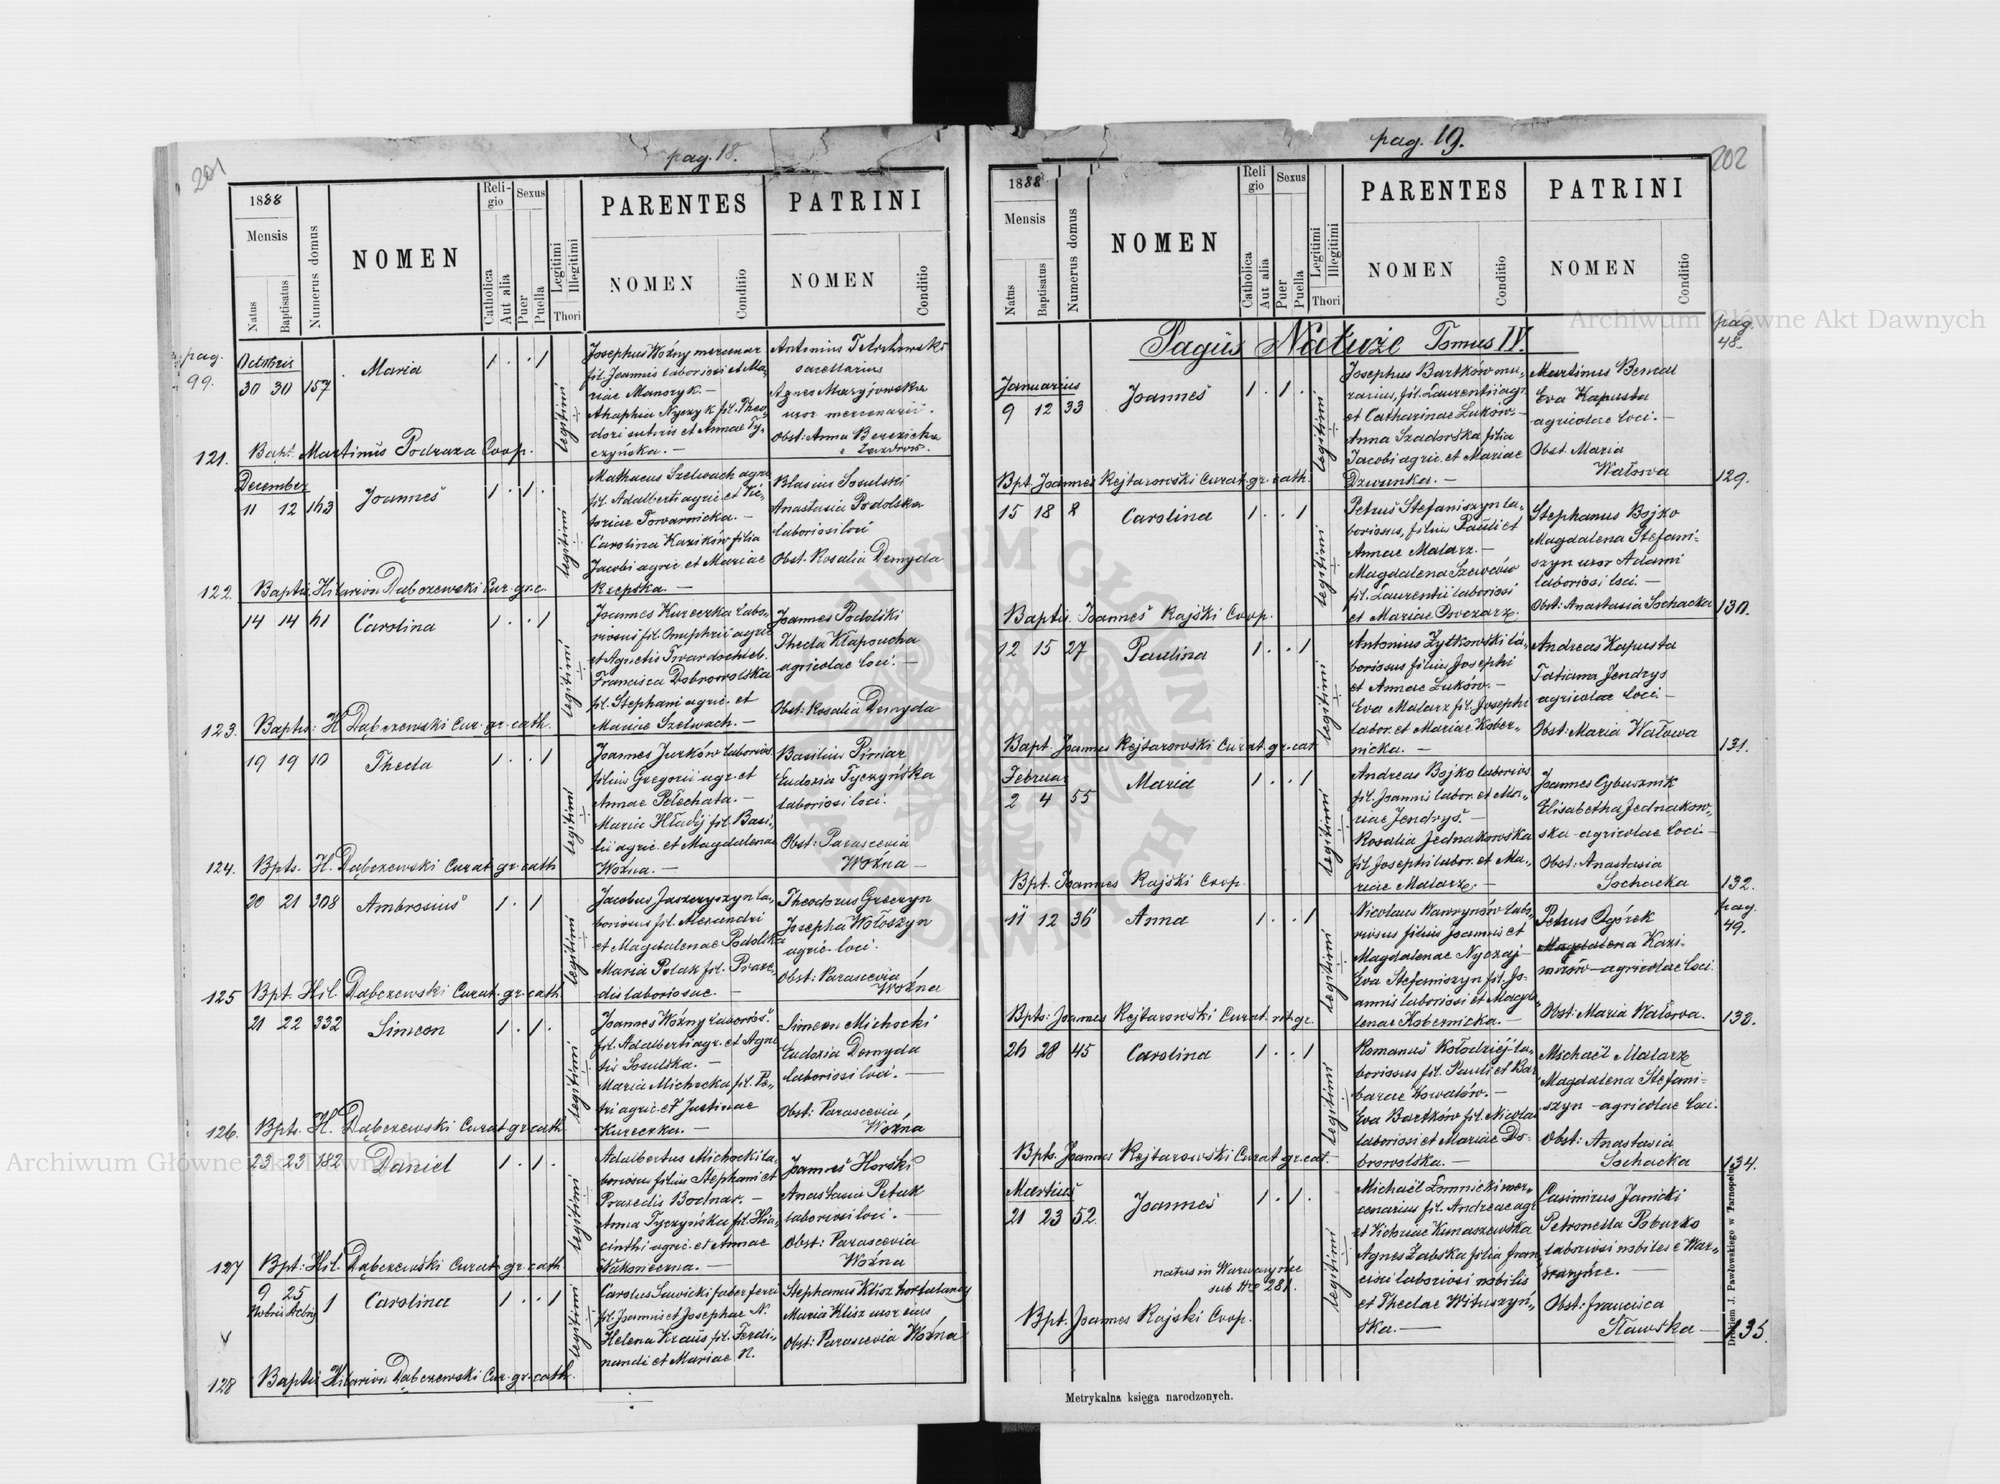 201
pag. 18.
1888
Mensis
Natus
Baptisatus
Numerus domus
NOMEN
Religio
Catholica
Aut alia
Sexus
Puer
Puella
Legitimi
Illegitimi
Thori
PARENTES
NOMEN
Conditio
PATRINI
NOMEN
Conditio
pag.
99.
Octobris
30 30 157 Maria 1 . . 1
legitimi
Josephus Woźny mercenar
fil. Joannis laboriosi et Ma-
riae Manzyk. —
Ahaphia Nyczyk fil. Theo-
dori sutoris et Annae Ty-
czyńska. —
Antonius
Agnes Maryjowska
uxor mercenarii.
Obst: Anna Berezicka
121. Bapt. Martinus Podraza Coop.
December
11 12 163 Joannes 1 . 1 .
legitimi
Mathaeus Szelwach agric
fil. Adalberti agric et Vic-
toriae Towarnicka. —
Carolina Kazików filia
Jacobi agric. et Mariae
Rzepska. —
Blasius Sosulski
Anastasia Podolska
laboriosi loci
Obst. Rosalia Demyda
122. Baptis. Hilarion Dąbczewski Cur. gr. c.
14 14 61 Carolina 1 . . 1
legitimi
Joannes Kureczka labo-
riosus fil. Onuphrii agric
et Agnetis Twardochleb.
Francisca Dobrowolska
fil. Stephani agric. et
Mariae Szelwach. —
Joannes Podolski
Theda Kłapoucha
agricolae loci. —
Obst: Rosalia Demyda
123. Baptis: H. Dąbczewski Cur. gr. cath.
19 19 10 Theda 1 . . 1
legitimi
Joannes Jurków laborios
filius Gregorii agr. et
Annae Pełechata. —
Maria Hładij fil. Basi-
lii agric. et Magdalenae
Woźna. —
Basilius Pirnar
Eudoxia Tyczyńska
laboriosi loci.
Obst: Parascevia
Woźna —
124. Bpts. H. Dąbczewski Curat gr. cath
20 21 308 Ambrosius 1 . 1
legitimi
Jacobus Jaszczyszyn la-
boriosus fil. Alexandri
et Magdalenae Podolska
Maria Polak fil. Praxe-
dis laboriosae. —
Theodorus Greczyn
Josepha Wołoszyn
agric. loci.
Obst: Parascevia
Woźna
125 Bpt. Hil. Dąbczewski Curat. gr. cath.
21 22 332 Simeon 1 . 1 .
legitimi
Joannes Woźny laborios.
fil. Adalberti agr. et Agne
tis Sosulska. —
Maria Michocka fil. Pe-
tri agric. et Justinae
Kureczka. —
Simeon Michocki
Eudoxia Demyda
laboriosi loci. —
Obst: Parascevia
Woźna
126. Bpts. H. Dąbczewski Curat gr. cath
23 23 182 Daniel 1 . 1 .
legitimi
Adalbertus Michocki la-
boriosus filius Stephani et
Praxedis Bodnar. —
Anna Tyczyńska fil. Hia-
cinthi agric. et Annae
Nakonieczna. —
Joannes Horski
Anastasia Petuk
laboriosi loci. —
Obst: Parascevia
Woźna
127 Bpt: Hil. Dąbczewski Curat. gr. cath.
9 25
1 Carolina 1 . . 1
legitimi
Carolus Sawicki faber ferri
fil. Joannis et Josephae N.
Helena Kraus fil. Ferdi-
nandi et Mariae N.
Stephanus Klisz hortulanus
Maria Klisz uxor eius
Obst: Parascevia Woźna
128 Baptis Hilarion Dąbczewski Cur. gr. cath.
202
pag. 19.
1888.
Mensis
Natus
Baptisatus
Numerus domus
NOMEN
Religio
Catholica
Aut alia
Sexus
Puer
Puella
Legitimi
Illegitimi
Thori
PARENTES
NOMEN
Conditio
PATRINI
NOMEN
Conditio
Pagus Natuże Tomus IV.
pag.
48.
Januarius
9 12 33 Joannes 1 . 1 .
legitimi
Josephus Bartków mu-
rarius, fil. Laurentii agr.
et Catharinae Luków. —
Anna Szadorska filia
Jacobi agric. et Mariae
Dziunka. —
Martinus Bernat
Eva Kapusta
agricolae loci. —
Obst. Maria
Wałowa
Bpt. Joannes Rejtarowski Curat. gr. cath.
129.
15 18 8 Carolina 1 . . 1
legitimi
Petrus Stefaniszyn la-
boriosus, filius Pauli et
Annae Malarz. —
Magdalena Szewców
fil. Laurentii laboriosi
et Mariae Owczarz.
Stephanus Bojko
Magdalena Stefani-
szyn uxor Adami
laboriosi loci. —
Obst: Anastasia Sochacka
Baptis. Joannes Rajski Coop.
130.
12 15 27 Paulina 1 . . 1
legitimi
Antonius Zytkowski la-
boriosus filius Josephi
et Annae Luków. —
Eva Malarz fil. Josephi
labor. et Mariae Kober-
nicka. —
Andreas Kapusta
Tatianna Jendrys
agricolae loci —
Obst: Maria Wałowa
Bapt. Joannes Rejtarowski Curat. gr. cat.
131.
Februar
2 4 55 Maria 1 . . 1
legitimi
Andreas Bojko laborios
fil. Joannis labor. et Ma-
riae Jendrys. —
Rosalia Jednakowska
fil. Josephi labor. et Ma-
riae Malarz. —
Joannes Cybusznik
Elisabetha Jednakow-
ska — agricolae loci —
Obst: Anastasia
Sochacka
Bpt. Joannes Rajski Coop.
132.
pag.
49.
11 12 36 Anna 1 . . 1
legitimi
Nicolaus Wawrynów labo-
riosus filius Joannis et
Magdalenae Nyczaj —
Eva Stefaniszyn fil. Jo-
annis laboriosi et Magda-
lenae Kobernicka. —
Petrus Ogórek
Magdalena Kazi-
mirów — agricolae loci.
Obst: Maria Wałowa.
Bpts: Joannes Rejtarowski Curat. rit. gr.
133.
26 28 45 Carolina 1 . . 1
legitimi
Romanus Kołodziej la-
boriosus fil. Pauli et Bar
barae Kowalów. —
Eva Bartków fil. Nicolai
laboriosi et Mariae Do-
browolska. —
Michaël Malarz
Magdalena Stefani-
szyn — agricolae loci.
Obst: Anastasia
Sochacka
Bpts. Joannes Rejtarowski Curat gr. cat.
134.
Martius
21 23 52. Joannes 1 . 1 .
legitimi
Michaël Łomnicki mer-
cenarius fil. Andreae agr
et Victoriae Kunaszewska
Agnes Żabska filia Fran-
cisci laboriosi nobilis
et Thedae Wituszyń-
ska. —
Casimirus Janicki
Petronella Poburko
laboriosi nobiles e War-
waryńce. —
Obst: Francisca
Sławska —
natus in Warwaryńce
sub Nro 281.
Bpt. Joannes Rajski Coop.
135.
Drukiem J. Pawłowskiego w Tarnopolu
Metrykalna księga narodzonych.
Archiwum Główne Akt Dawnych
Archiwum Główne Akt Dawnych
ARCHIWUM GŁÓWNE AKT DAWNYCH